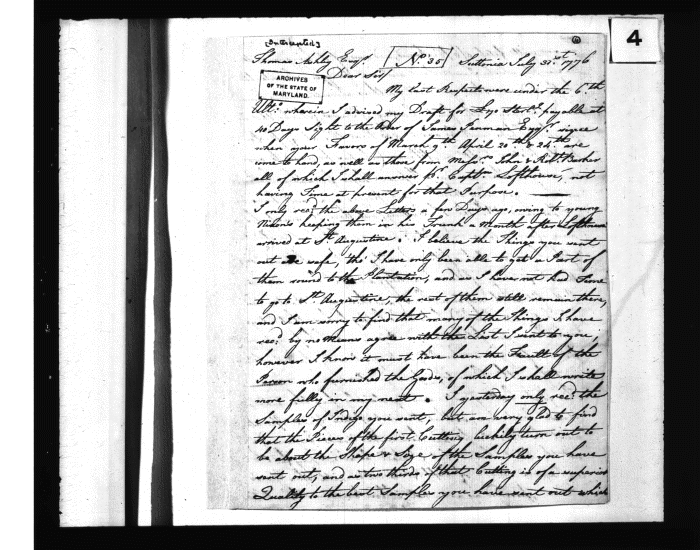 [Intercepted]
4
Thomas Ashby Esqr. No. 35 Suttonia July 31st 1776
Dear Sir/
ARCHIVES
OF THE STATE OF
MARYLAND.
My Last Respects were under the 6th
Ulto. wherein I advised my Draft for Sterl. payable at
40 Days Sight to the Order of James Penman Esqr. since
when your Favors of March 9th April 20th & 24th are
come to hand, as well as those from Messrs. John & Robt. Barker
all of which I shall answer pr. Captn. Lofthouse, not
having Time at present for that Purpose.
I only recd. the above Letters a few Days ago, owing to young
keeping them in his Trunk a Month after Lofthouse
arrived at St. Augustine: I believe the Things you sent
out are safe, tho' I have only been able to get a Part of
them round to the Plantation, and as I have not had Time
to go to St. Augustine, the rest of them still remain there,
and I am sorry to find that many of the Things I have
recd. by no Means agree with the List I sent to you;
however I know it must have been the Fault of the
Person who furnished the Goods, of which I shall write
more fully in my next. I yesterday only recd. the
Samples of Indigo you sent, but am very glad to find
that the Pieces of the first Cutting luckily turn out to
be about the Shape & Size of the Samples you have
sent out, and as two thirds of that Cutting is of a superior
Quality to the best Samples you have sent out which